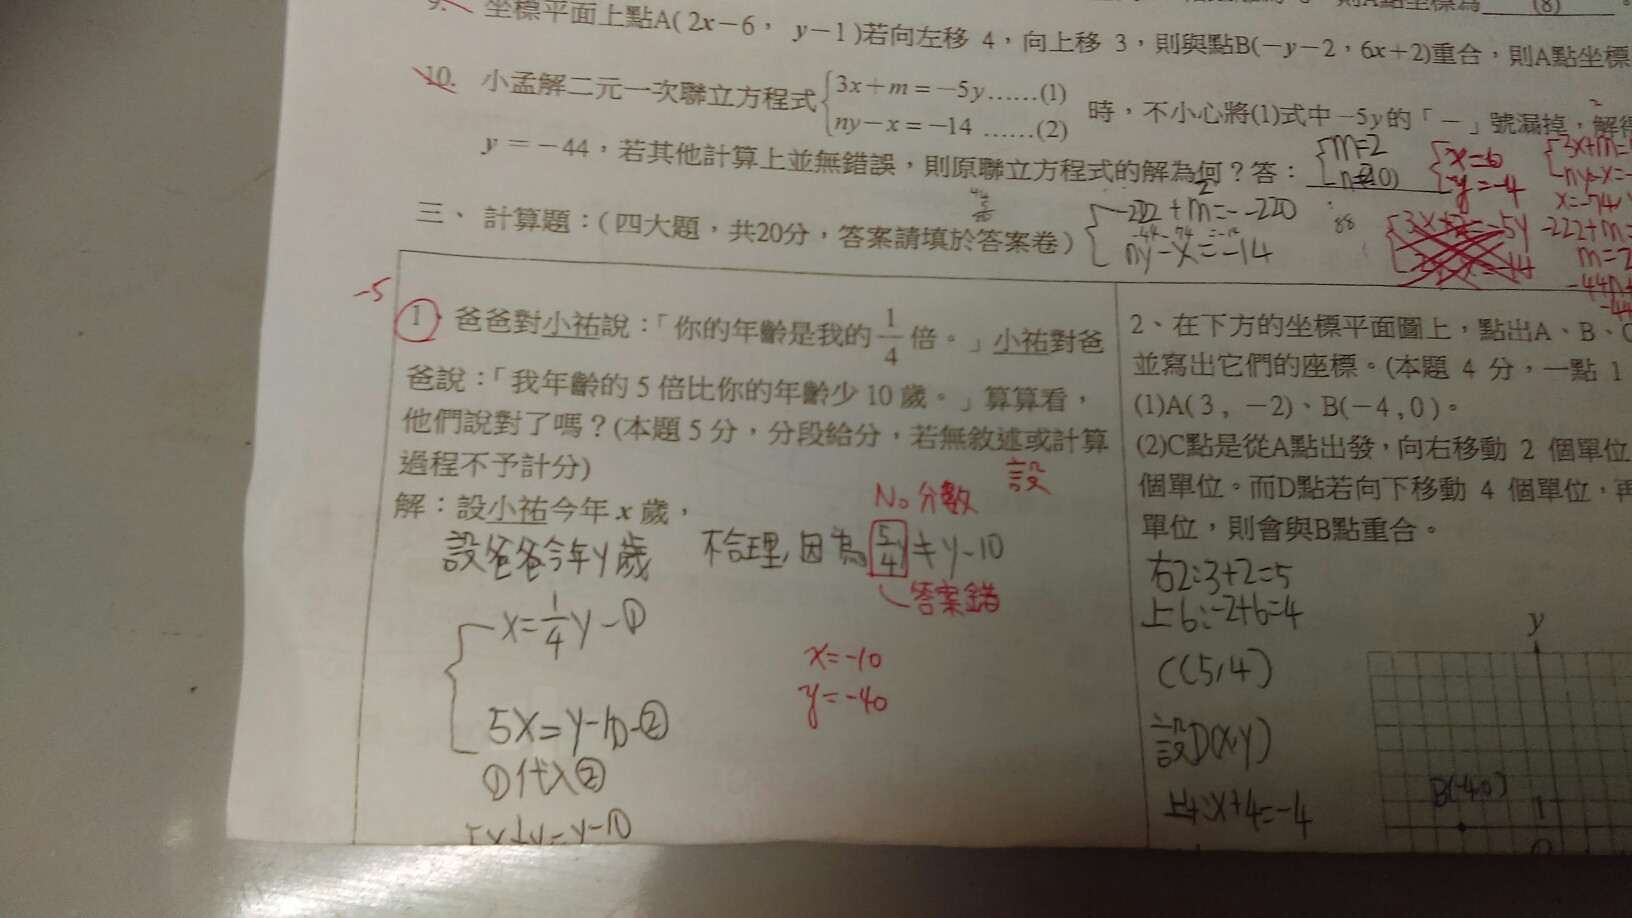 9. 坐標平面上點A( 2x－6， y－1 )若向左移 4，向上移 3，則與點B(－y－2，6x＋2)重合，則A點坐標
(8)
10. 小孟解二元一次聯立方程式 3x＋m＝－5y……(1) 時，不小心將(1)式中－5y的「－」號漏掉，解得
ny－x＝－14 ……(2)
y ＝－44，若其他計算上並無錯誤，則原聯立方程式的解為何？答：
m=2
x=6
y=-4
x=-74
-222+m=-220
ny-x=-14
88
-222+m=
m=2
三、 計算題：( 四大題，共20分，答案請填於答案卷)
-5
1 爸爸對小祐說：「你的年齡是我的 1/4 倍。」小祐對爸
爸說：「我年齡的 5 倍比你的年齡少 10 歲。」算算看，
他們說對了嗎？(本題 5 分，分段給分，若無敘述或計算
過程不予計分)
設
解：設小祐今年 x 歲，
No 分數
設爸爸今年y歲
不合理,因為 5/4y ≠ y-10
答案錯
x=1/4y-①
x=-10
y=-40
5x=y-10-②
①代入②
2、在下方的坐標平面圖上，點出A、B、C
並寫出它們的座標。(本題 4 分，一點 1
(1)A( 3 , －2)、B(－4 , 0 )。
(2)C點是從A點出發，向右移動 2 個單位
個單位。而D點若向下移動 4 個單位，再
單位，則會與B點重合。
右2:3+2=5
上6:-2+6=4
C(5,4)
設D(x,y)
x+4=-4
y
B(-4,0)
1